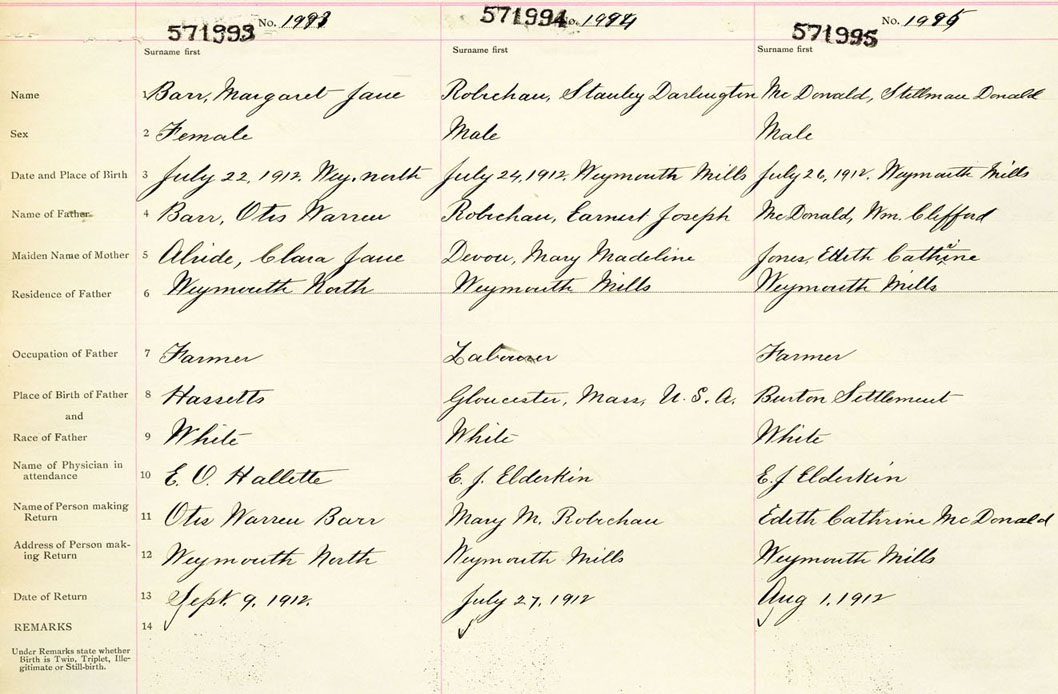 571993 No. 1983 571994 No. 1984 571995 No. 1985
Surname first Surname first Surname first
Name 1 Barr, Margaret Jane Robichau, Stanley Darlington McDonald, Stillman Donald
Sex 2 Female Male Male
Date and Place of Birth 3 July 22, 1912. Wey. north July 24, 1912. Weymouth Mills July 26, 1912. Weymouth Mills
Name of Father 4 Barr, Otis Warren Robichau, Earnest Joseph McDonald, Wm. Clifford
Maiden Name of Mother 5 Clara Jane Devou, Mary Madeline Jones, Edith Cathrine
Residence of Father 6 Weymouth North Weymouth Mills Weymouth Mills
Occupation of Father 7 Farmer Labourer Farmer
Place of Birth of Father 8 Hassetts Gloucester, Mass, U. S. A. Burton Settlement
and
Race of Father 9 White White White
Name of Physician in
attendance 10 E. O. Hallette E. J. Elderkin E. J Elderkin
Name of Person making
Return 11 Otis Warren Barr Mary M. Robichau Edith Cathrine McDonald
Address of Person mak-
ing Return 12 Weymouth North Weymouth Mills Weymouth Mills
Date of Return 13 Sept. 9, 1912. July 27, 1912 Aug 1, 1912
REMARKS 14
Under Remarks state whether
Birth is Twin, Triplet, Ille-
gitimate or Still-birth.